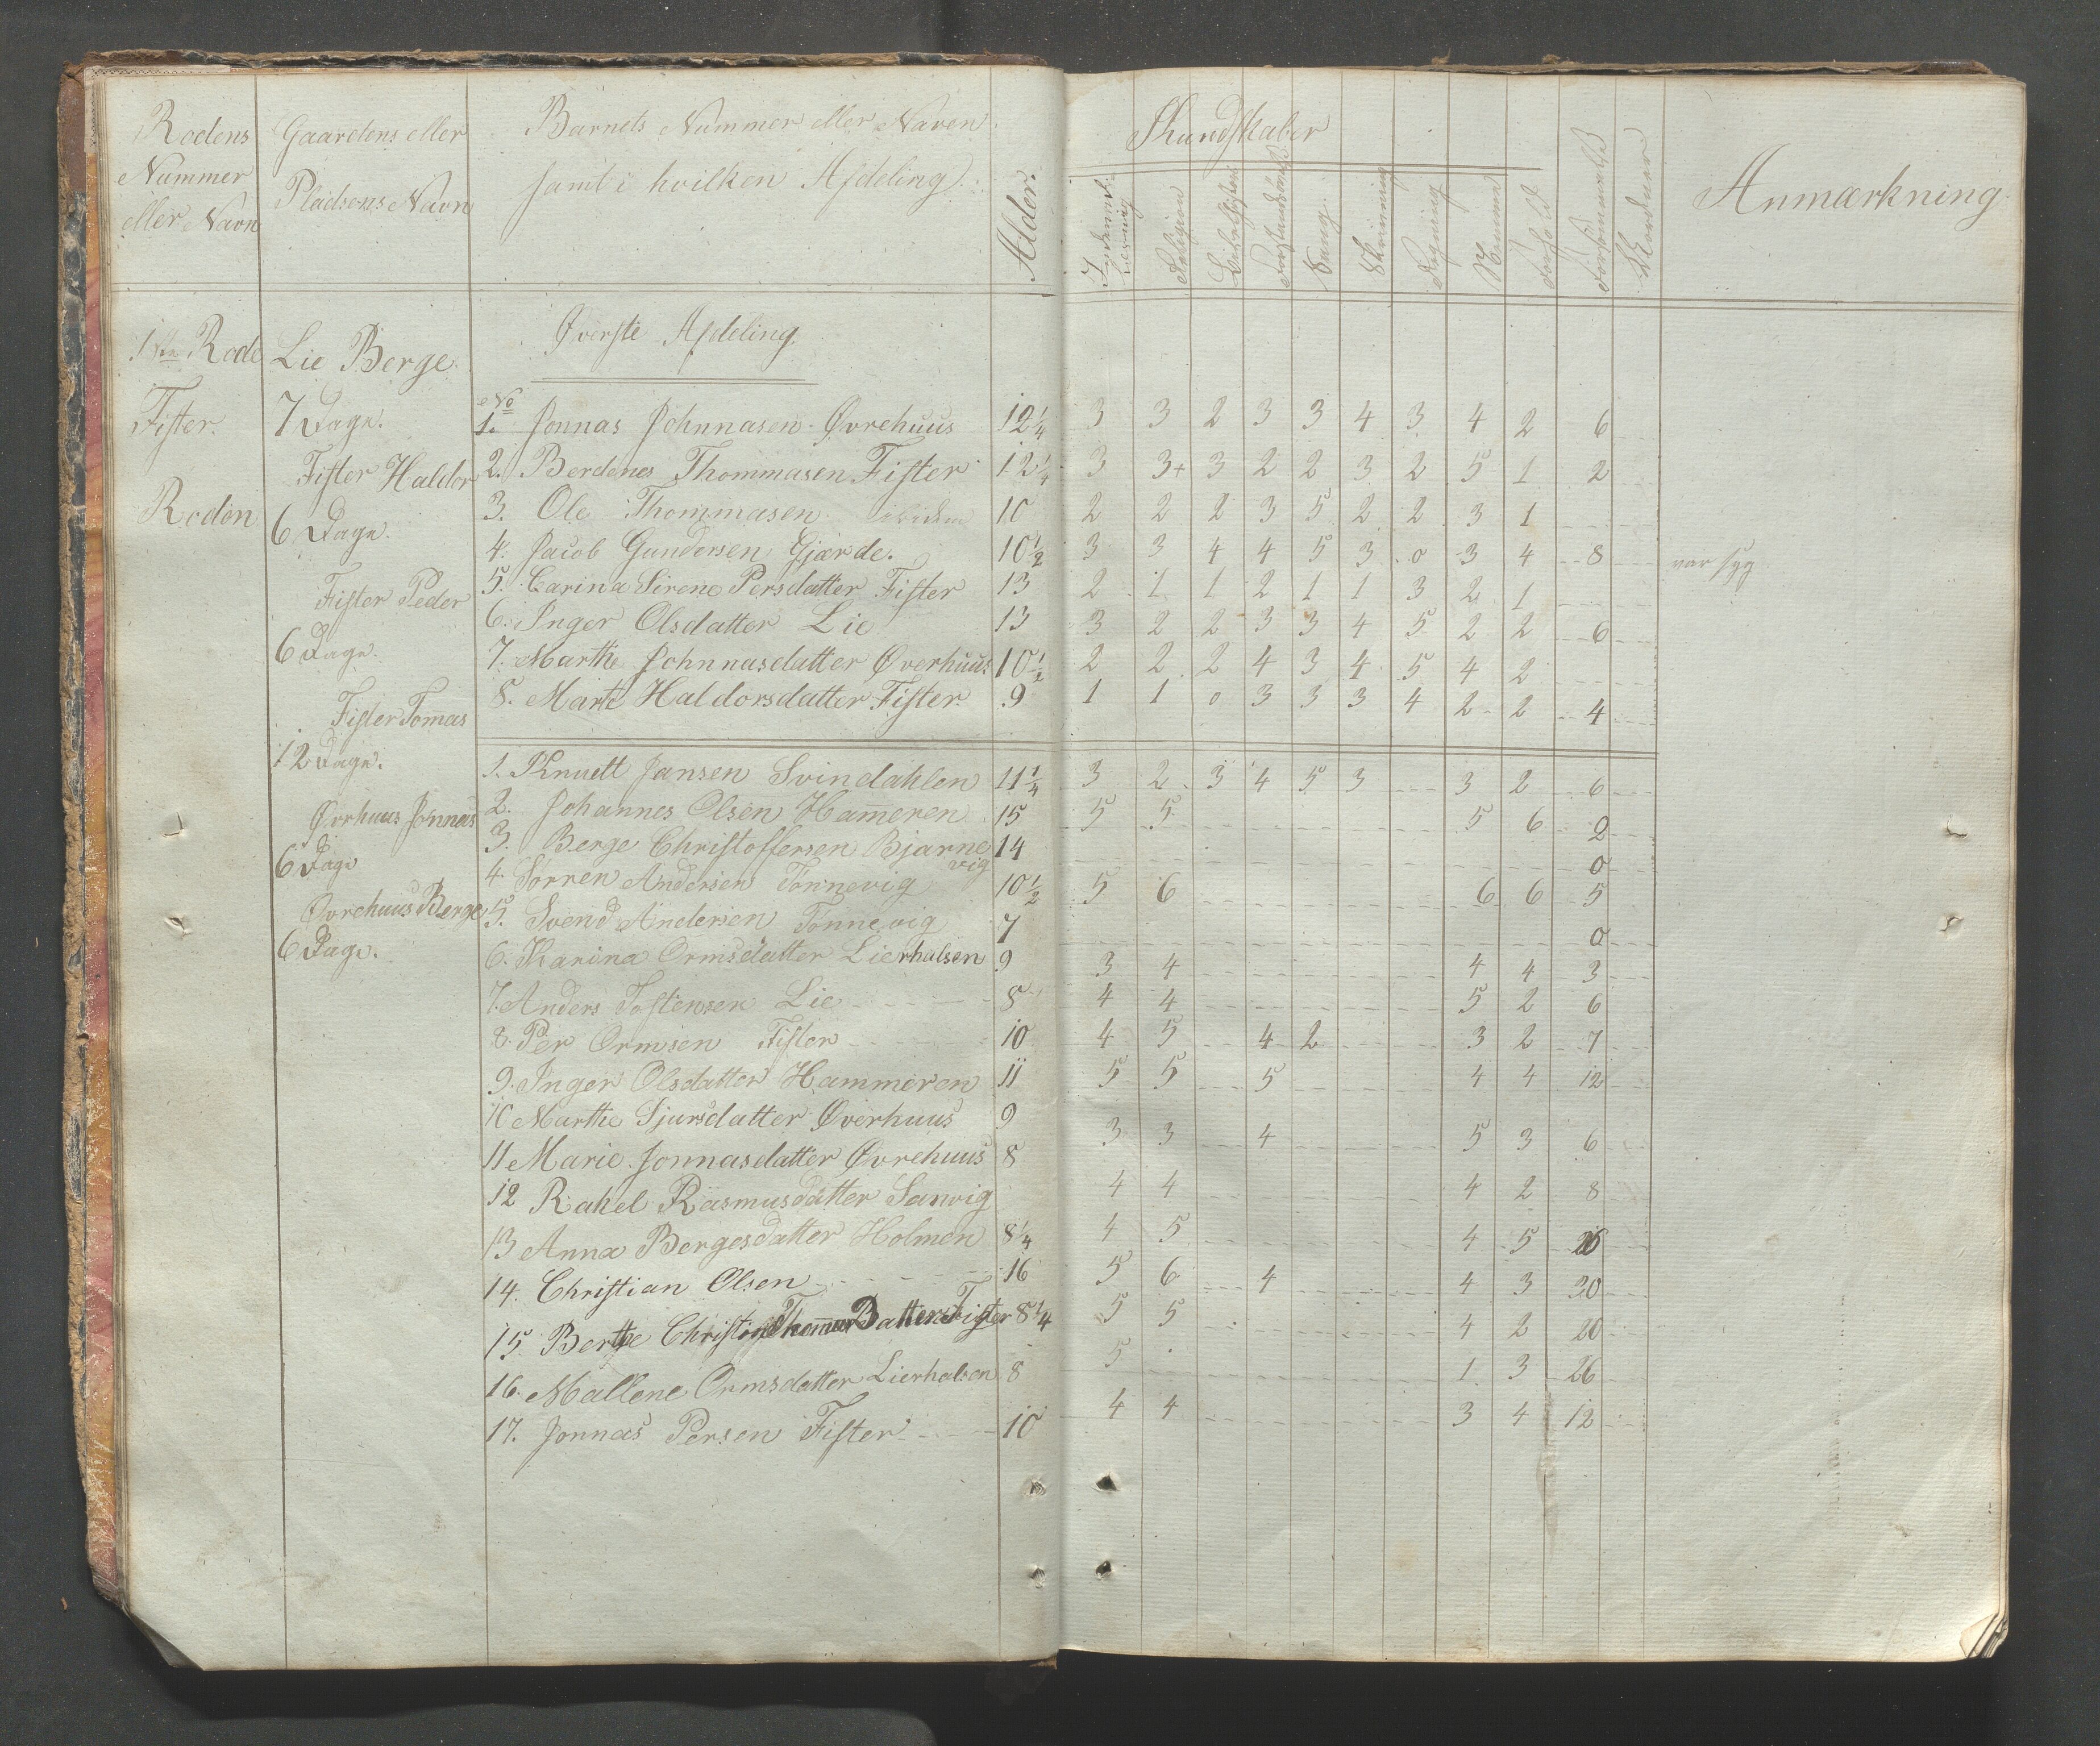 Rodens
Nummer
eller Navn
Gaardens eller
Pladsens Navn
Barnets Nummer eller Naven
samt i hvilken Afdeling
Alder.
Kundskaber
Religion
Sang
Skrivning
Regning
Nemme
Forhold
Forsømmelse
Anmærkning
1ste Rode
Fister
Roden
Lie Berge
7 Dage.
Fister Haldor
6 Dage.
Fister Peder
6 Dage.
Fister Tom̄as
12 Dage.
Øvrhuus Jonnas
6 Dage
Øvrehuus Berge
6 Dage.
Øverste Afdeling
No
1. Jonnas Johnnasen Øvrehuus 12¼ 3 3 2 3 3 4 3 4 2 6
2. Berdenes Thommasen Fister 12¼ 3 3+ 3 2 2 3 2 5 1 2
3. Ole Thommasen ibidem 10 2 2 2 3 5 2 2 3 1
4. Jacob Gundersen Gjærde. 10½ 3 3 4 4 5 3 0 3 4 8 var syg
5. Carina Sirene Persdatter Fister 13 2 1 1 2 1 1 3 2 1
6. Inger Olsdatter Lie 13 3 2 2 3 3 4 5 2 2 6
7. Marthe Johnnasdatter Øverhuus 10½ 2 2 2 4 3 4 5 4 2
8. Marte Haldorsdatter Fister 9 1 1 0 3 3 3 4 2 2 4
1. Knuett Jansen Svindahlen 11¼ 3 2 3 4 5 3 3 2 6
2. Johannes Olsen Ham̄eren 15 5 5 5 6 2
3. Berge Christoffersen Bjarne 14 0
vig
4. Sørren Andersen Tønnevig 10½ 5 6 6 6 5
5. Svend Andersen Tønnevig 7 0
6. Karina Ormsdatter Lierhalsen 9 3 4 4 4 3
7. Anders Tostensen Lie 8 4 4 5 2 6
8. Per Ormsen Fister 10 4 5 4 2 3 2 7
9. Inger Olsdatter Hammeren 11 5 5 5 4 4 12
10 Marthe Sjursdatter Øverhuus 9 3 3 4 5 3 6
11 Marie Jonnasdatter Øvrehuus 8 4 4 4 2 8
12 Rahel Rasmusdatter Sanvig 4 5 4 5
13 Anna Bergesdatter Holmen 8¼ 5 6 4 4 3 30
14. Christian Olsen 16 5 5 4 2 20
15 Berthe Christine Thom̄as Datter Fister 8¼ 5 1 3 26
16. Mallene Ormsdatter Lierhalsen 8 4 4 3 4 12
17. Jonnas Persen Fister 10